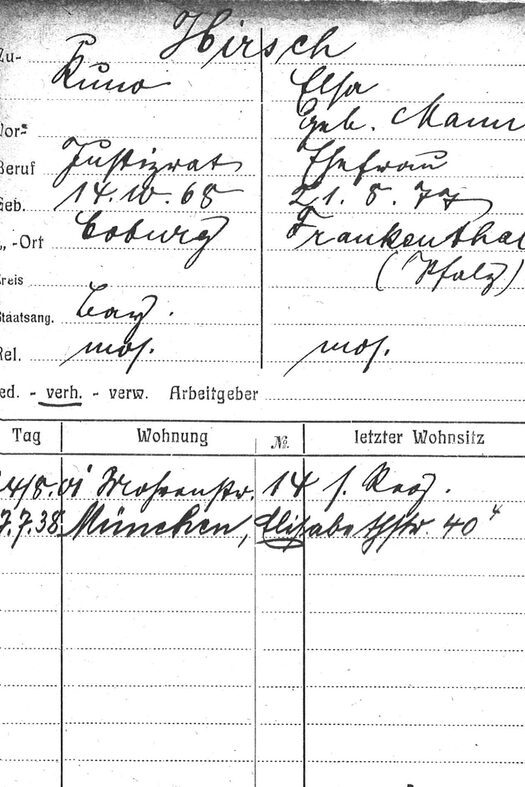 Hirsch
Zu-
Kuno Elsa
geb. Mann
Vor-
Beruf Justizrat Ehefrau
Geb. 14.10.68 21.8.77
" -Ort Coburg Frankenthal
(Pfalz)
Kreis
Staatsang. bay.
Rel. mos. mos.
led. - verh. - verw. Arbeitgeber
Tag Wohnung № letzter Wohnsitz
Mohrenstr. 14 s. Reg.
7.7.38 München, Elisabethstr. 40